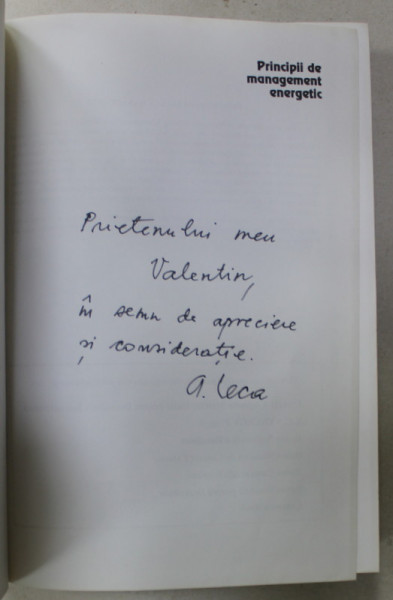 Principii de
management
energetic
Prietenului meu
Valentin,
în semn de apreciere
și considerație.
A. Leca